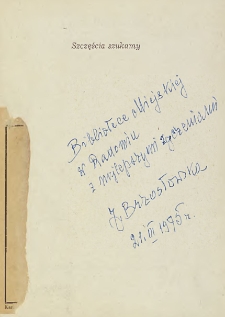 Szczęścia szukamy
Bibliotece Miejskiej
w Radomiu
z najlepszymi życzeniami
J. Brzostowska
22.III 1975 r.